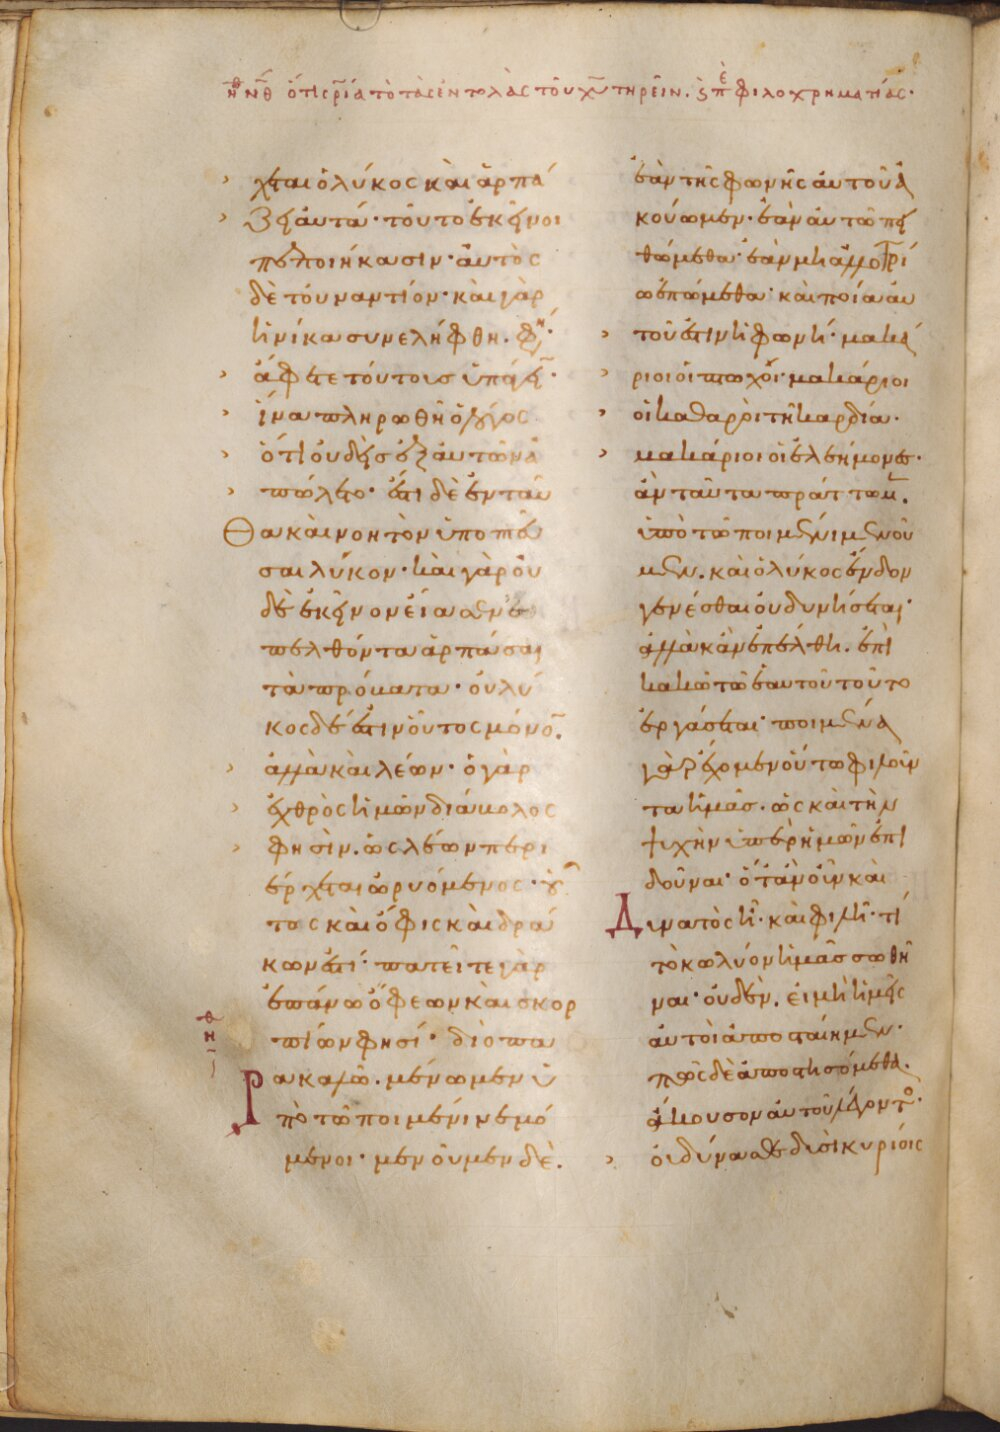 ἠθ νθ ὅτι ϛρία τὸ τὰς ἐντολὰς τοῦ χυ τηρεῖν. ϛ πὲ φιλοχρηματίας·
χεται ὁ λύκος καὶ ἁρπά
ζει αὐτά· τοῦτο ἐκεῖνοι
πεποιήκασιν· αὐτὸς
δὲ τοὐναντίον· καὶ γὰρ
ἡνίκα συνελήφθη. φη·
ἄφετε τούτους ὑπάγειν·
ἵνα πληρωθῆ ὁ λόγος
ὅτι οὐδεὶς ἐξ αὐτῶν ἀ
πώλετο· ἔτι δὲ ἐνταῦ
θα καὶ νοητὸν ὑποπτεῦ
σαι λύκον· καὶ γὰρ οὐ
δὲ ἐκεῖνον εἴασεν ἐ
πελθόντα ἁρπάσαι
τὰ πρόβατα· οὐ λύ
κος δέ ἐστιν οὗτος μόνον.
ἀλλὰ καὶ λέων· ὁ γὰρ
ἐχθρὸς ἡμῶν διάβολος
φησίν. ὡς λέων περι
έρχεται ὠρυόμενος· οὗ
τος καὶ ὄφις καὶ δρά
κων ἐστί· πατεῖτε γὰρ
ἐπάνω ὄφεων καὶ σκορ
πίων φησί· διὸ πα
ρακαλῶ. μένωμεν ὑ
πὸ τῶ ποιμένι νεμό
μενοι· μενοῦμεν δὲ.
ἐὰν τῆς φωνῆς αὐτοῦ ἀ
κούωμεν· ἐὰν αὐτῶ πει
θώμεθα· ἐὰν μὴ ἀλλοτρί
ω ἑπώμεθα· καὶ ποία αὐ
τοῦ ἐστιν ἡ φωνή· μακά
ριοι οἱ πτωχοί· μακάριοι
οἱ καθαροὶ τῆ καρδία·
μακάριοι οἱ ἐλεήμονες·
ἂν ταῦτα πράττωμεν.
ὑπὸ τῶ ποιμένι μενοῦ
μεν. καὶ ὁ λύκος ἔνδον
γενέσθαι οὐ δυνήσεται·
ἀλλὰ κἂν ἐπέλθη. ἐπὶ
κακῶ τῶ ἑαυτοῦ τοῦτο
ἐργάσεται· ποιμένα
γὰρ ἔχομεν οὕτω φιλοῦν
τα ἡμᾶς. ὡς καὶ τὴν
ψυχὴν ὑπὲρ ἡμῶν ἐπι
δοῦναι· ὅταν οὖν καὶ
δυνατὸς ἦ· καὶ φιλῆ· τί
τὸ κωλύον ἡμᾶς σωθῆ
ναι· οὐδὲν. εἰ μὴ ἡμεῖς
αὐτοὶ ἀποσταίημεν·
πῶς δὲ ἀποστησόμεθα.
ἄκουσον αὐτοῦ λέγοντος·
οὐ δύνασθε δυσὶ κυρίοις